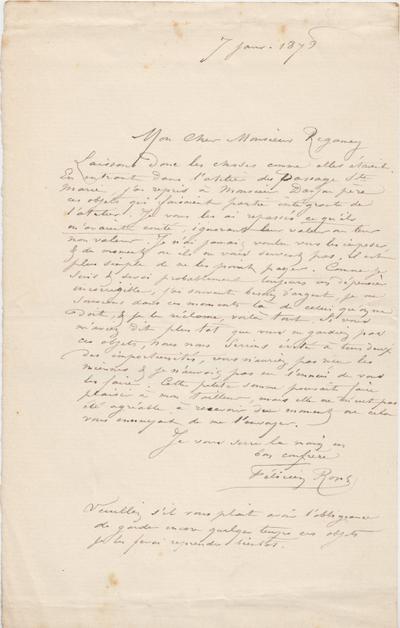 7 janv. 1873
Mon Cher Monsieur Regamey
Laissons donc les choses comme elles étaient.
En entrant dans l'atelier du Passage Ste
Marie j'ai repris à Monsieur père
ces objets qui faisaient partie intégrante de
l'atelier. Je vous les ai repassés ce qu'ils
m'avaient couté, ignorant leur valeur ou leur
non valeur. Je n'ai jamais voulu vous les imposer,
& du moment où ils ne vous servent pas, il est
plus simple de ne les point payer. Comme je
suis & serai probablement toujours un dépensier
incorrigible, j'ai souvent besoin d'argent, je me
souviens dans ces moments là de celui qu'on me
doit, & je le réclame, voilà tout. Si vous
m'aviez dit plus tôt que vous ne gardiez pas
ces objets, nous nous serions évité à tous deux
des importunités, vous n'auriez pas reçu les
miennes & je n'aurais pas eu l'ennui de vous
les faire. Cette petite somme pouvait faire
plaisir à mon tailleur, mais elle ne m'eut pas
été agréable à recevoir du moment où cela
vous ennuyait de me l'envoyer.
Je vous serre la main en
bon confrère
Félicien Rops
Veuillez s'il vous plait avoir l'obligeance
de garder encore quelque temps ces objets
je les ferai reprendre bientot.